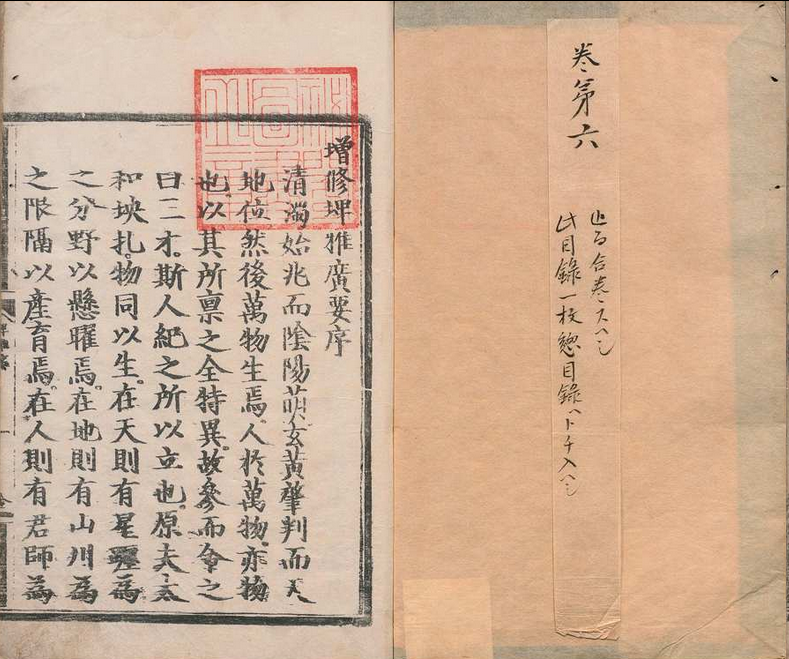 卷第六
此目錄一枚惣目錄ハトチ入ヘシ
增修埤雅廣要序
清濁始兆而陰陽萌玄黃肇判而天
地位然後萬物生焉。人於萬物。亦物
也。以其所禀之全特異。故參而命之
曰三才。斯人紀之所以立也。原夫太
和坱扎。物同以生。在天則有星躔為
之分野以懸曜焉。在地則有山川為
之限隔以產育焉。在人則有君師為